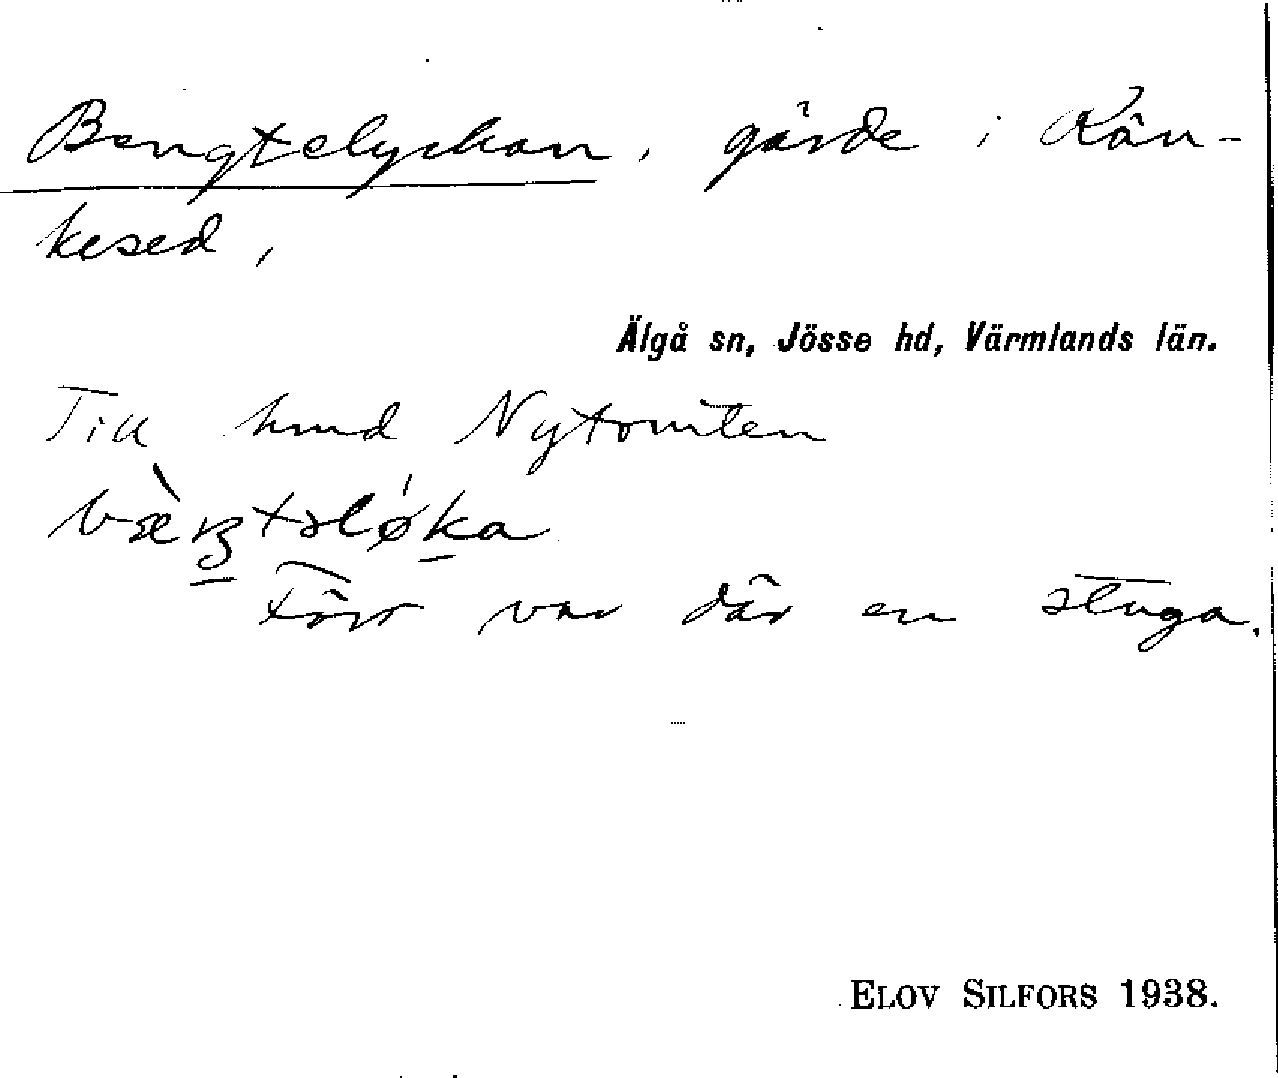 Bengtelyckan, gärde i Rån-
kesed,
Älgå sn, Jösse hd, Värmlands län.
Till hmd Nytomten
Förr var där en stuga.
ELOV SILFORS 1938.